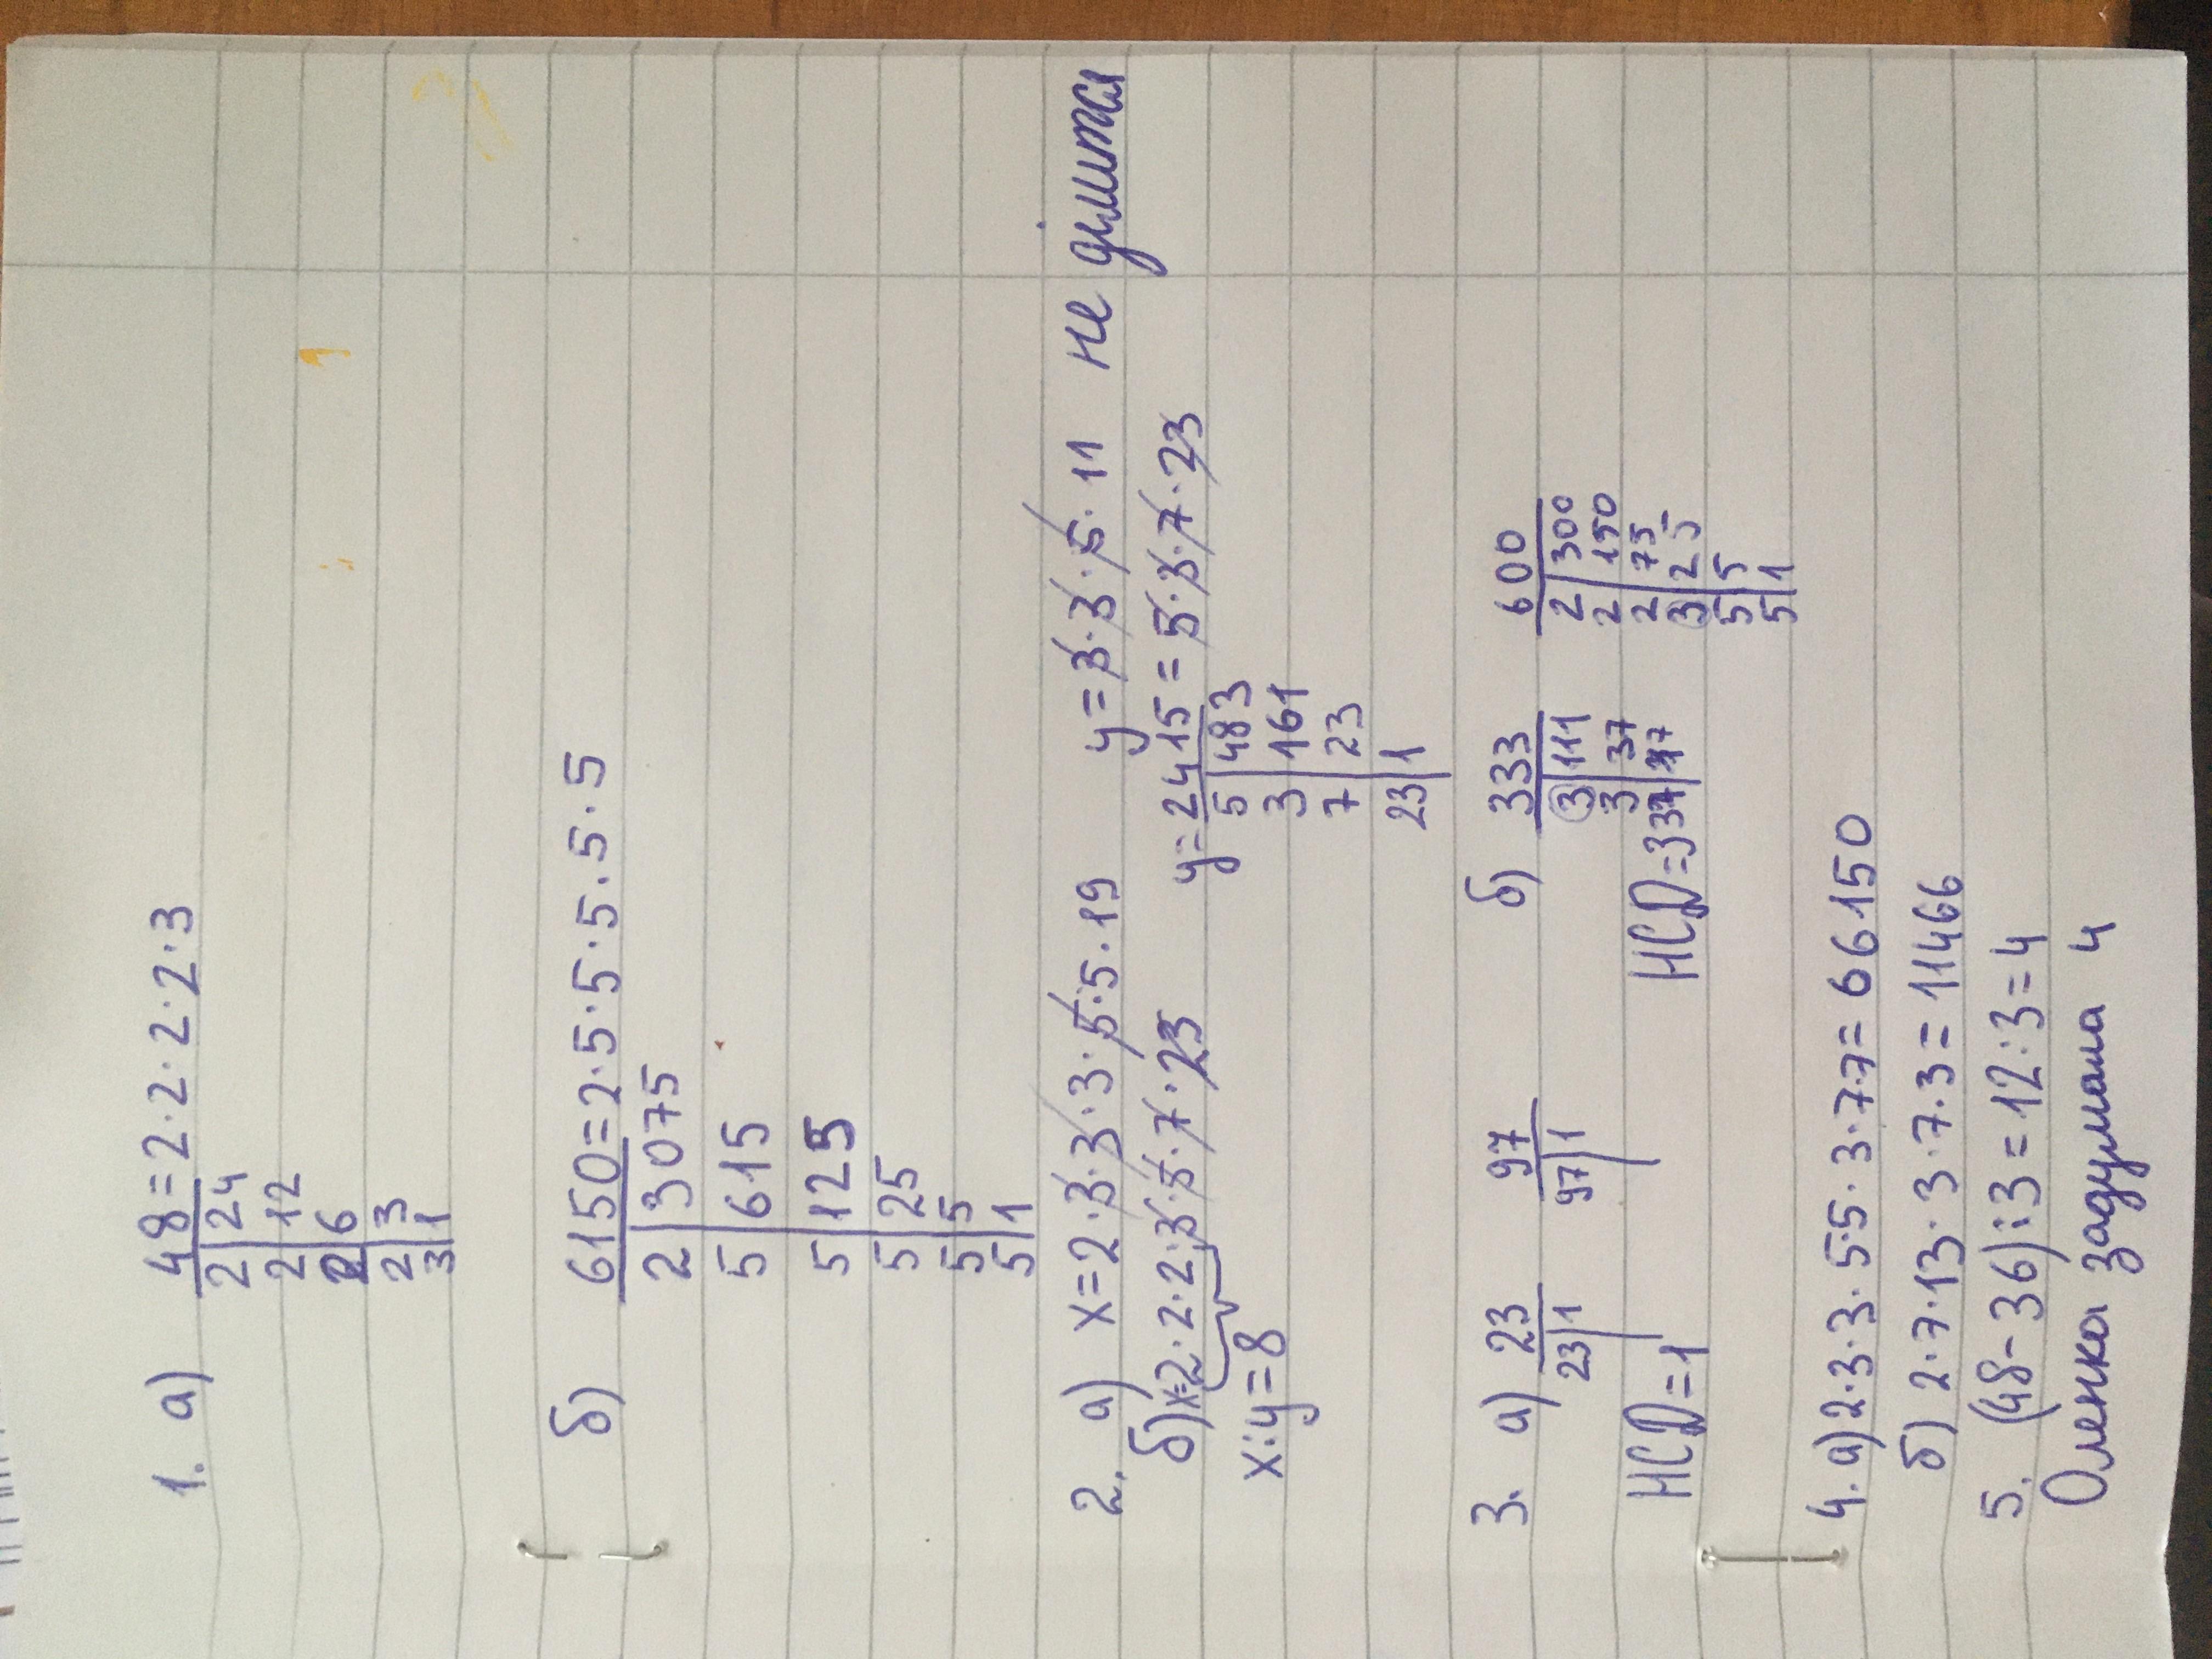 1. а) 48 = 2 · 2 · 2 · 2 · 3
2 | 24
2 | 12
2 | 6
2 | 3
3 | 1
б) 6150 = 2 · 5 · 5 · 5 · 5 · 5
2 | 3075
5 | 615
5 | 125
5 | 25
5 | 5
5 | 1
2. а) x = 2 · 3 · 3 · 3 · 5 · 5 · 19 y = 3 · 3 · 5 · 11 не ділиться
б) x = 2 · 2 · 2 · 3 · 5 · 7 · 23 y = 2415 = 5 · 3 · 7 · 23
x : y = 8
5 | 483
3 | 161
7 | 23
23 | 1
3. а) 23 97
23 | 1 97 | 1
НСД = 1
б) 333 600
3 | 111 2 | 300
3 | 37 2 | 150
37 | 2 | 75
3 | 25
5 | 5
5 | 1
НСД = 3
4. а) 2 · 3 · 3 · 5 · 5 · 3 · 7 · 7 = 66150
б) 2 · 7 · 13 · 3 · 7 · 3 = 11466
5. (48 - 36) : 3 = 12 : 3 = 4
Оленка задумала 4